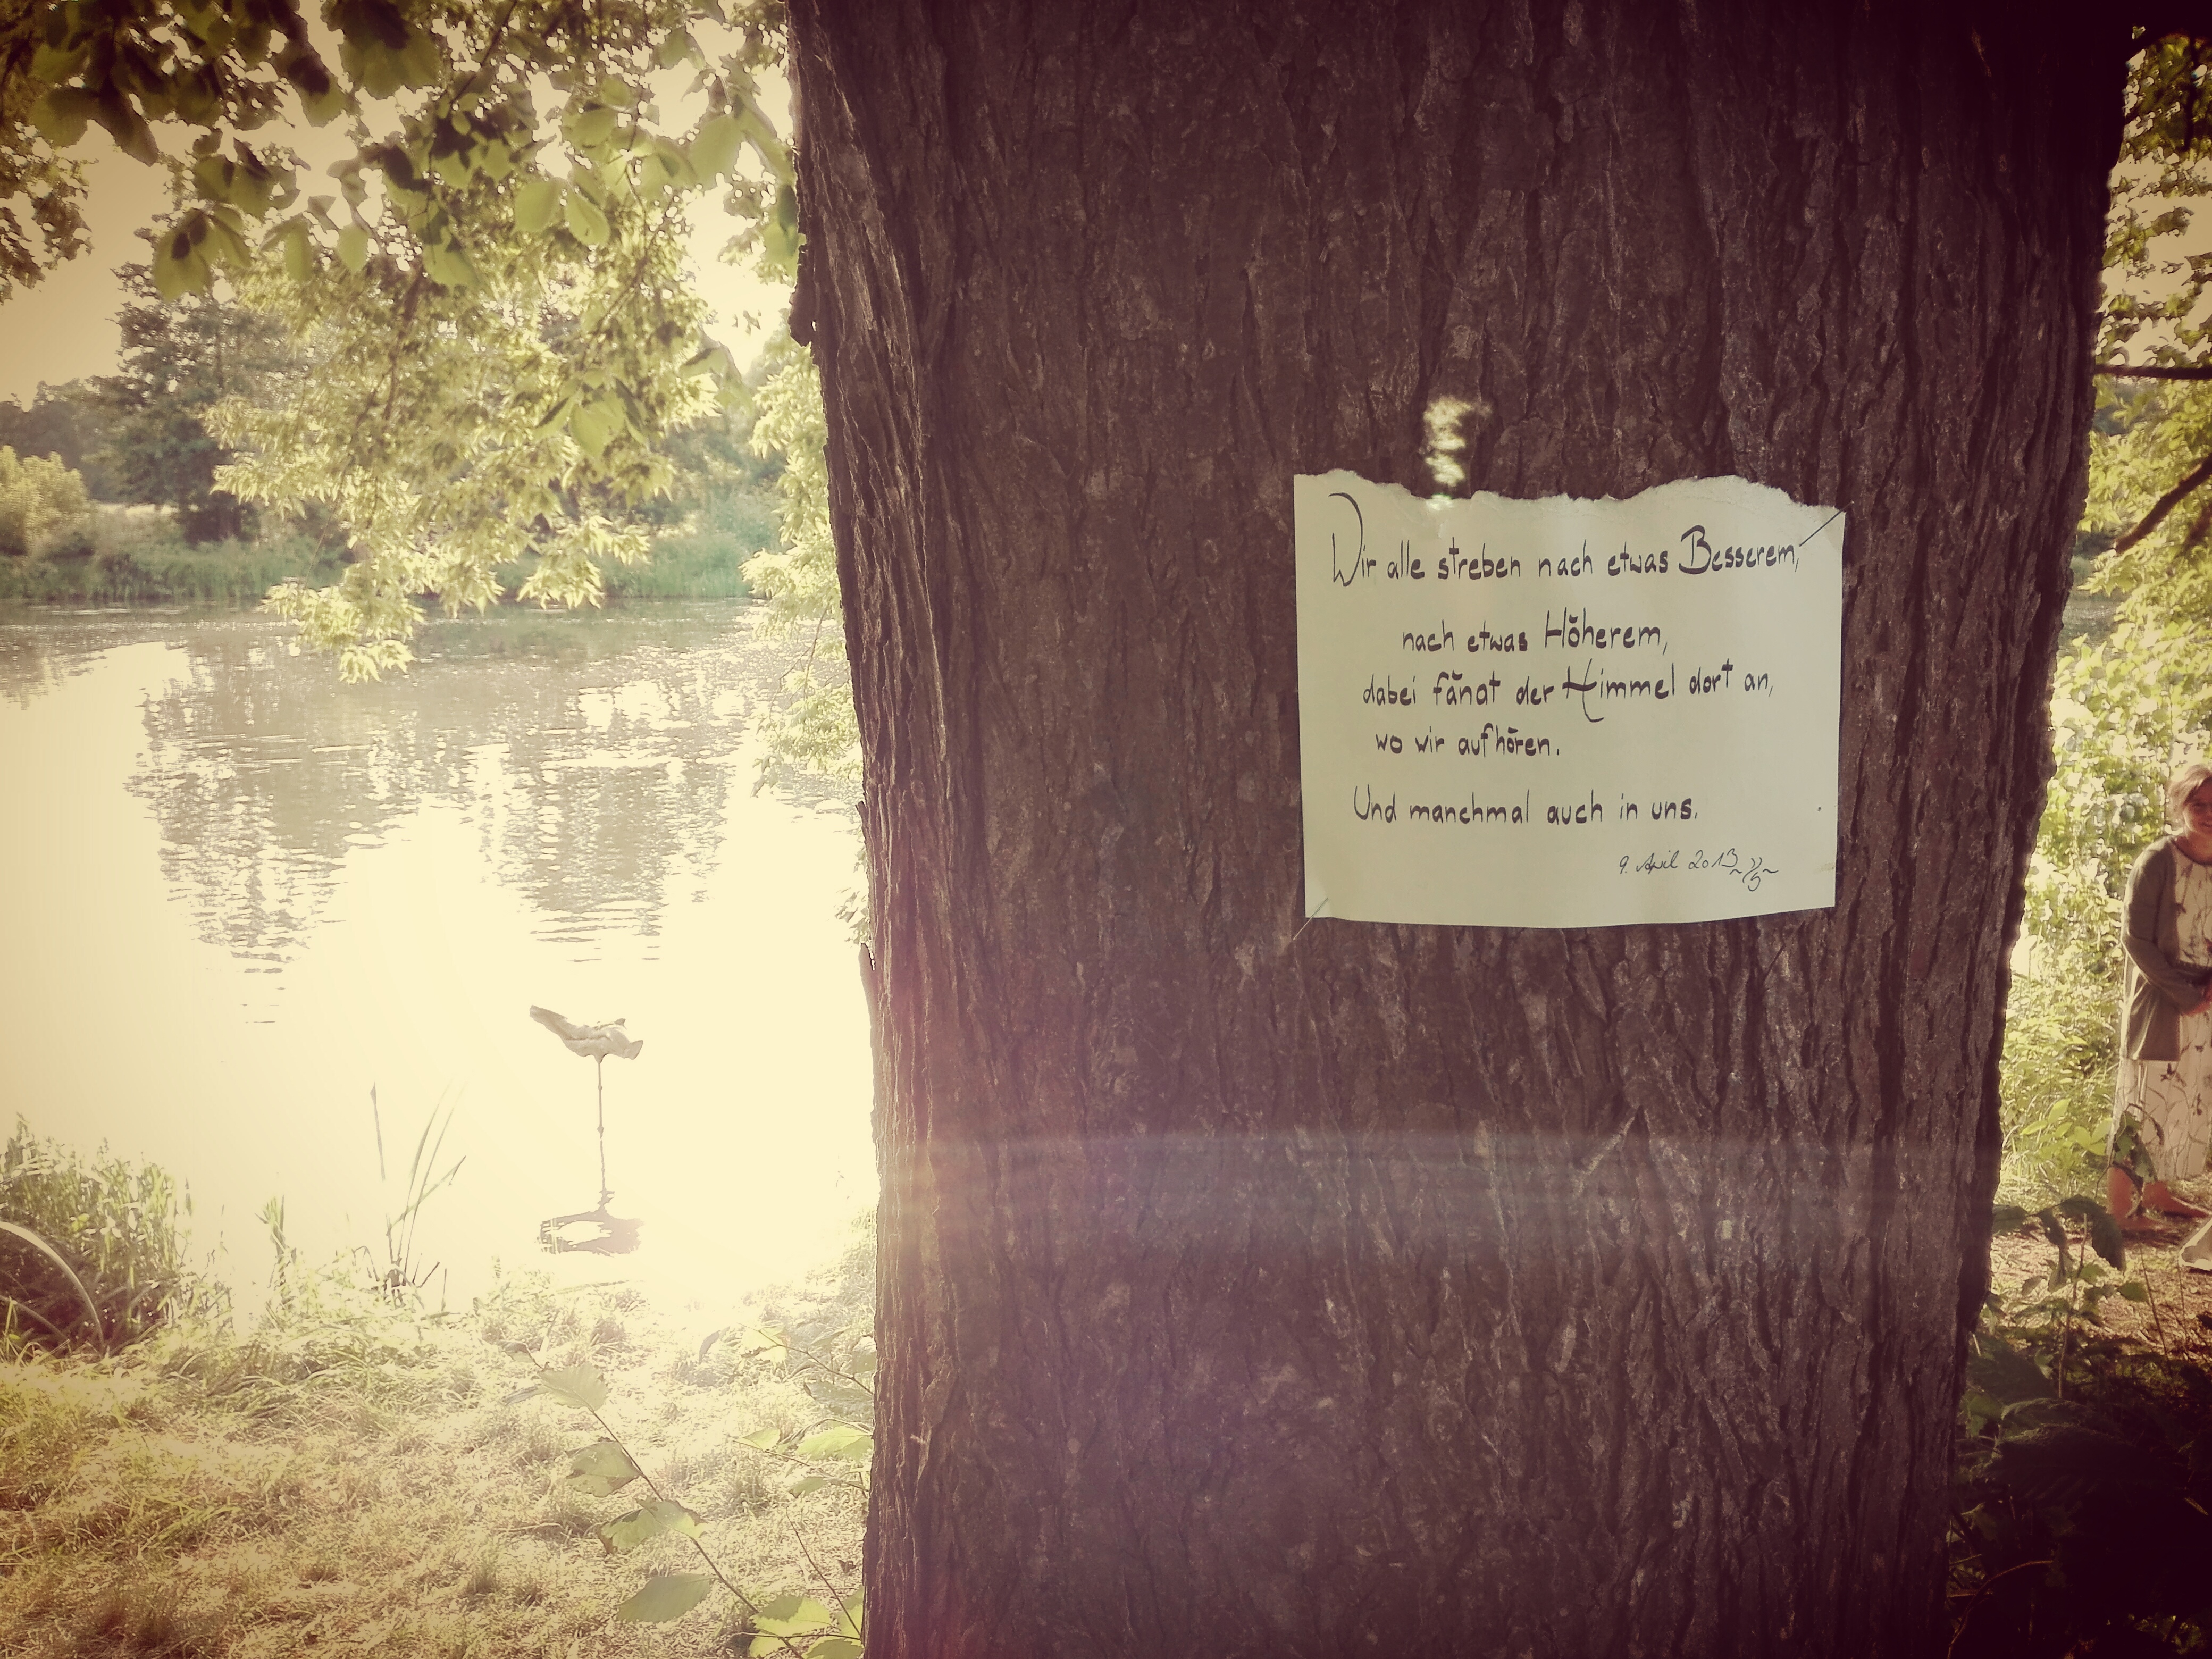 Wir alle streben nach etwas Besserem,
nach etwas Höherem,
dabei fängt der Himmel dort an,
wo wir aufhören.
Und manchmal auch in uns.
9. April 2013